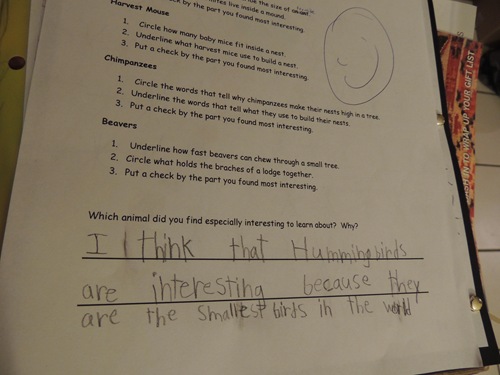 the size of an
mites live inside a mound.
ck by the part you found most interesting.
Harvest Mouse
1. Circle how many baby mice fit inside a nest.
2. Underline what harvest mice use to build a nest.
3. Put a check by the part you found most interesting.
Chimpanzees
1. Circle the words that tell why chimpanzees make their nests high in a tree.
2. Underline the words that tell what they use to build their nests.
3. Put a check by the part you found most interesting.
Beavers
1. Underline how fast beavers can chew through a small tree.
2. Circle what holds the braches of a lodge together.
3. Put a check by the part you found most interesting.
Which animal did you find especially interesting to learn about? Why?
I think that Hummingbirds
are interesting because they
are the smallest birds in the world
INTO WRAP UP YOUR GIFT LIST